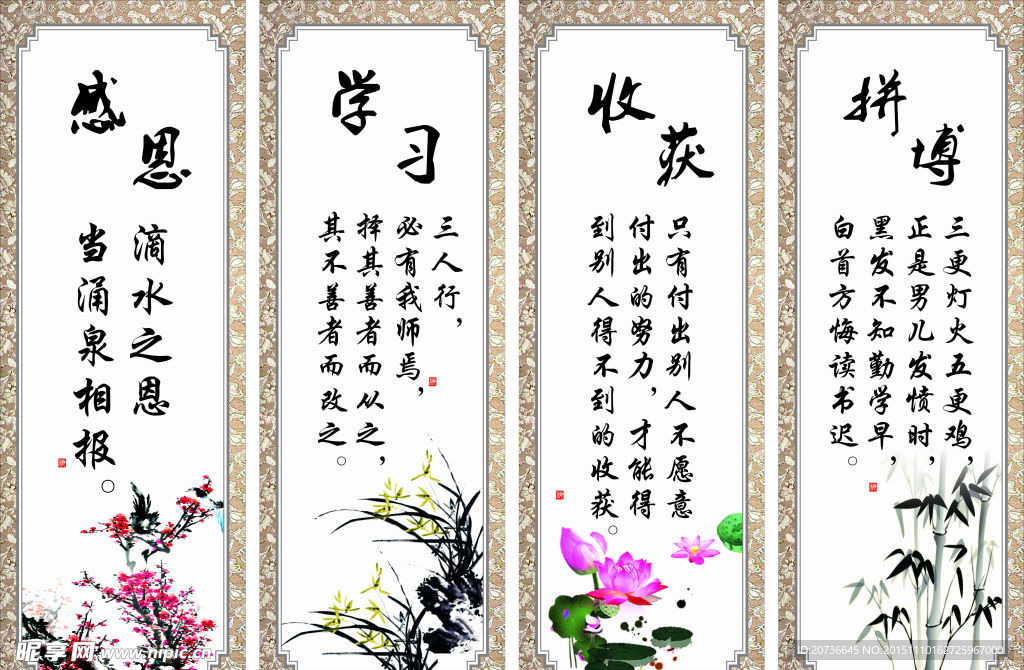 感恩
滴水之恩
当涌泉相报。
学习
三人行，
必有我师焉，
择其善者而从之，
其不善者而改之。
收获
只有付出别人不愿意
付出的努力，才能得
到别人得不到的收获。
拼博
三更灯火五更鸡，
正是男儿发愤时，
黑发不知勤学早，
白首方悔读书迟。
昵享网 www.nipic.cn
ID:20736645 NO:20151110162725967000